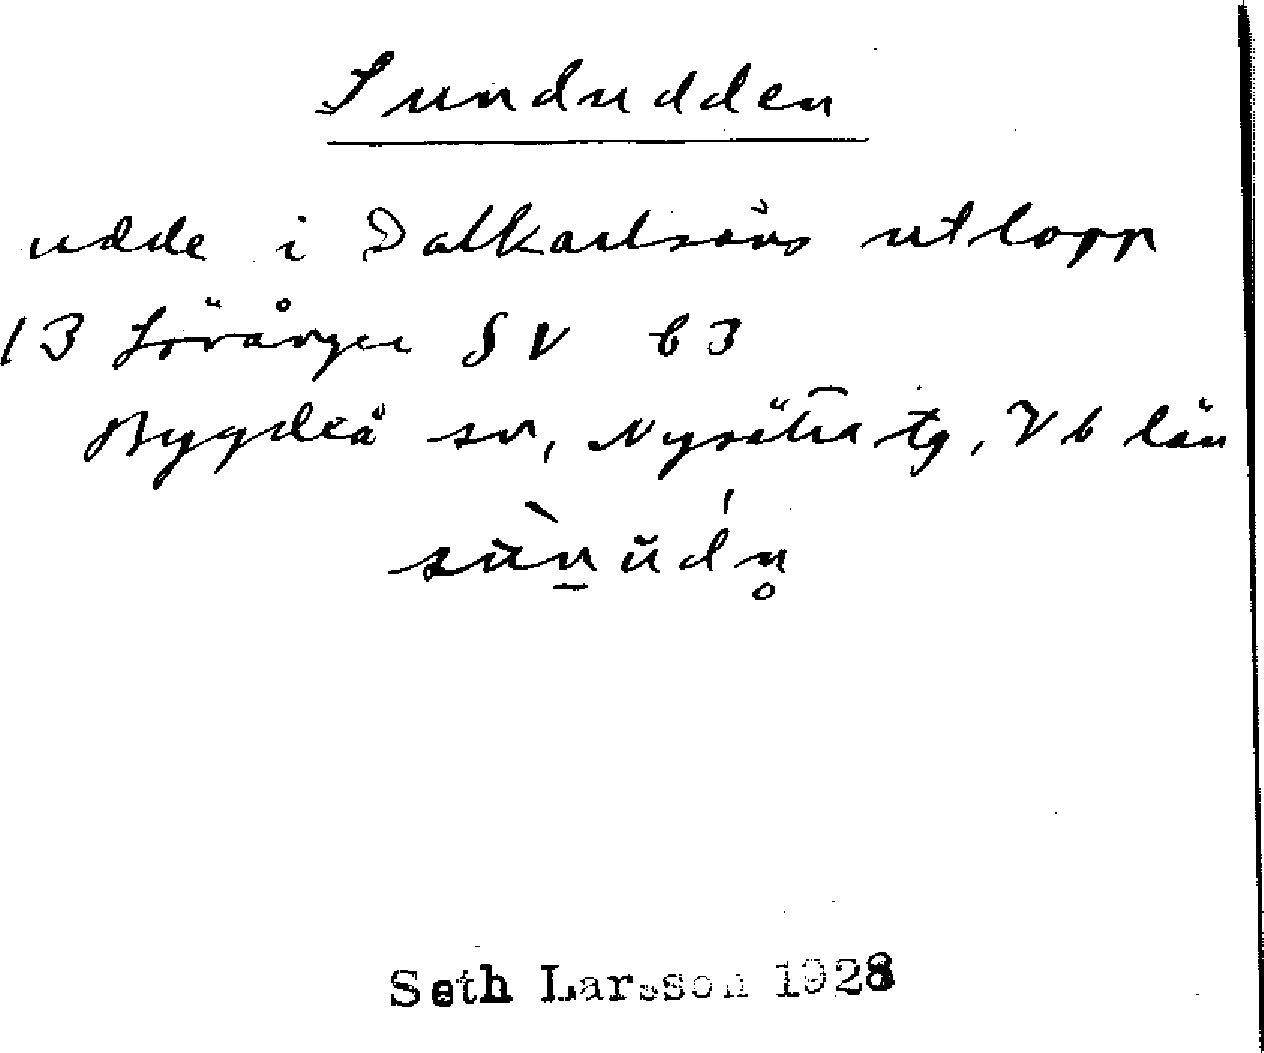 Sundudden
udde i Dalkarlsåns utlopp
13 Lövånger SV b3
Bygdeå sn, Nysätra tg, Vb län
sùṉŭdn̥
Seth Larsson 1928